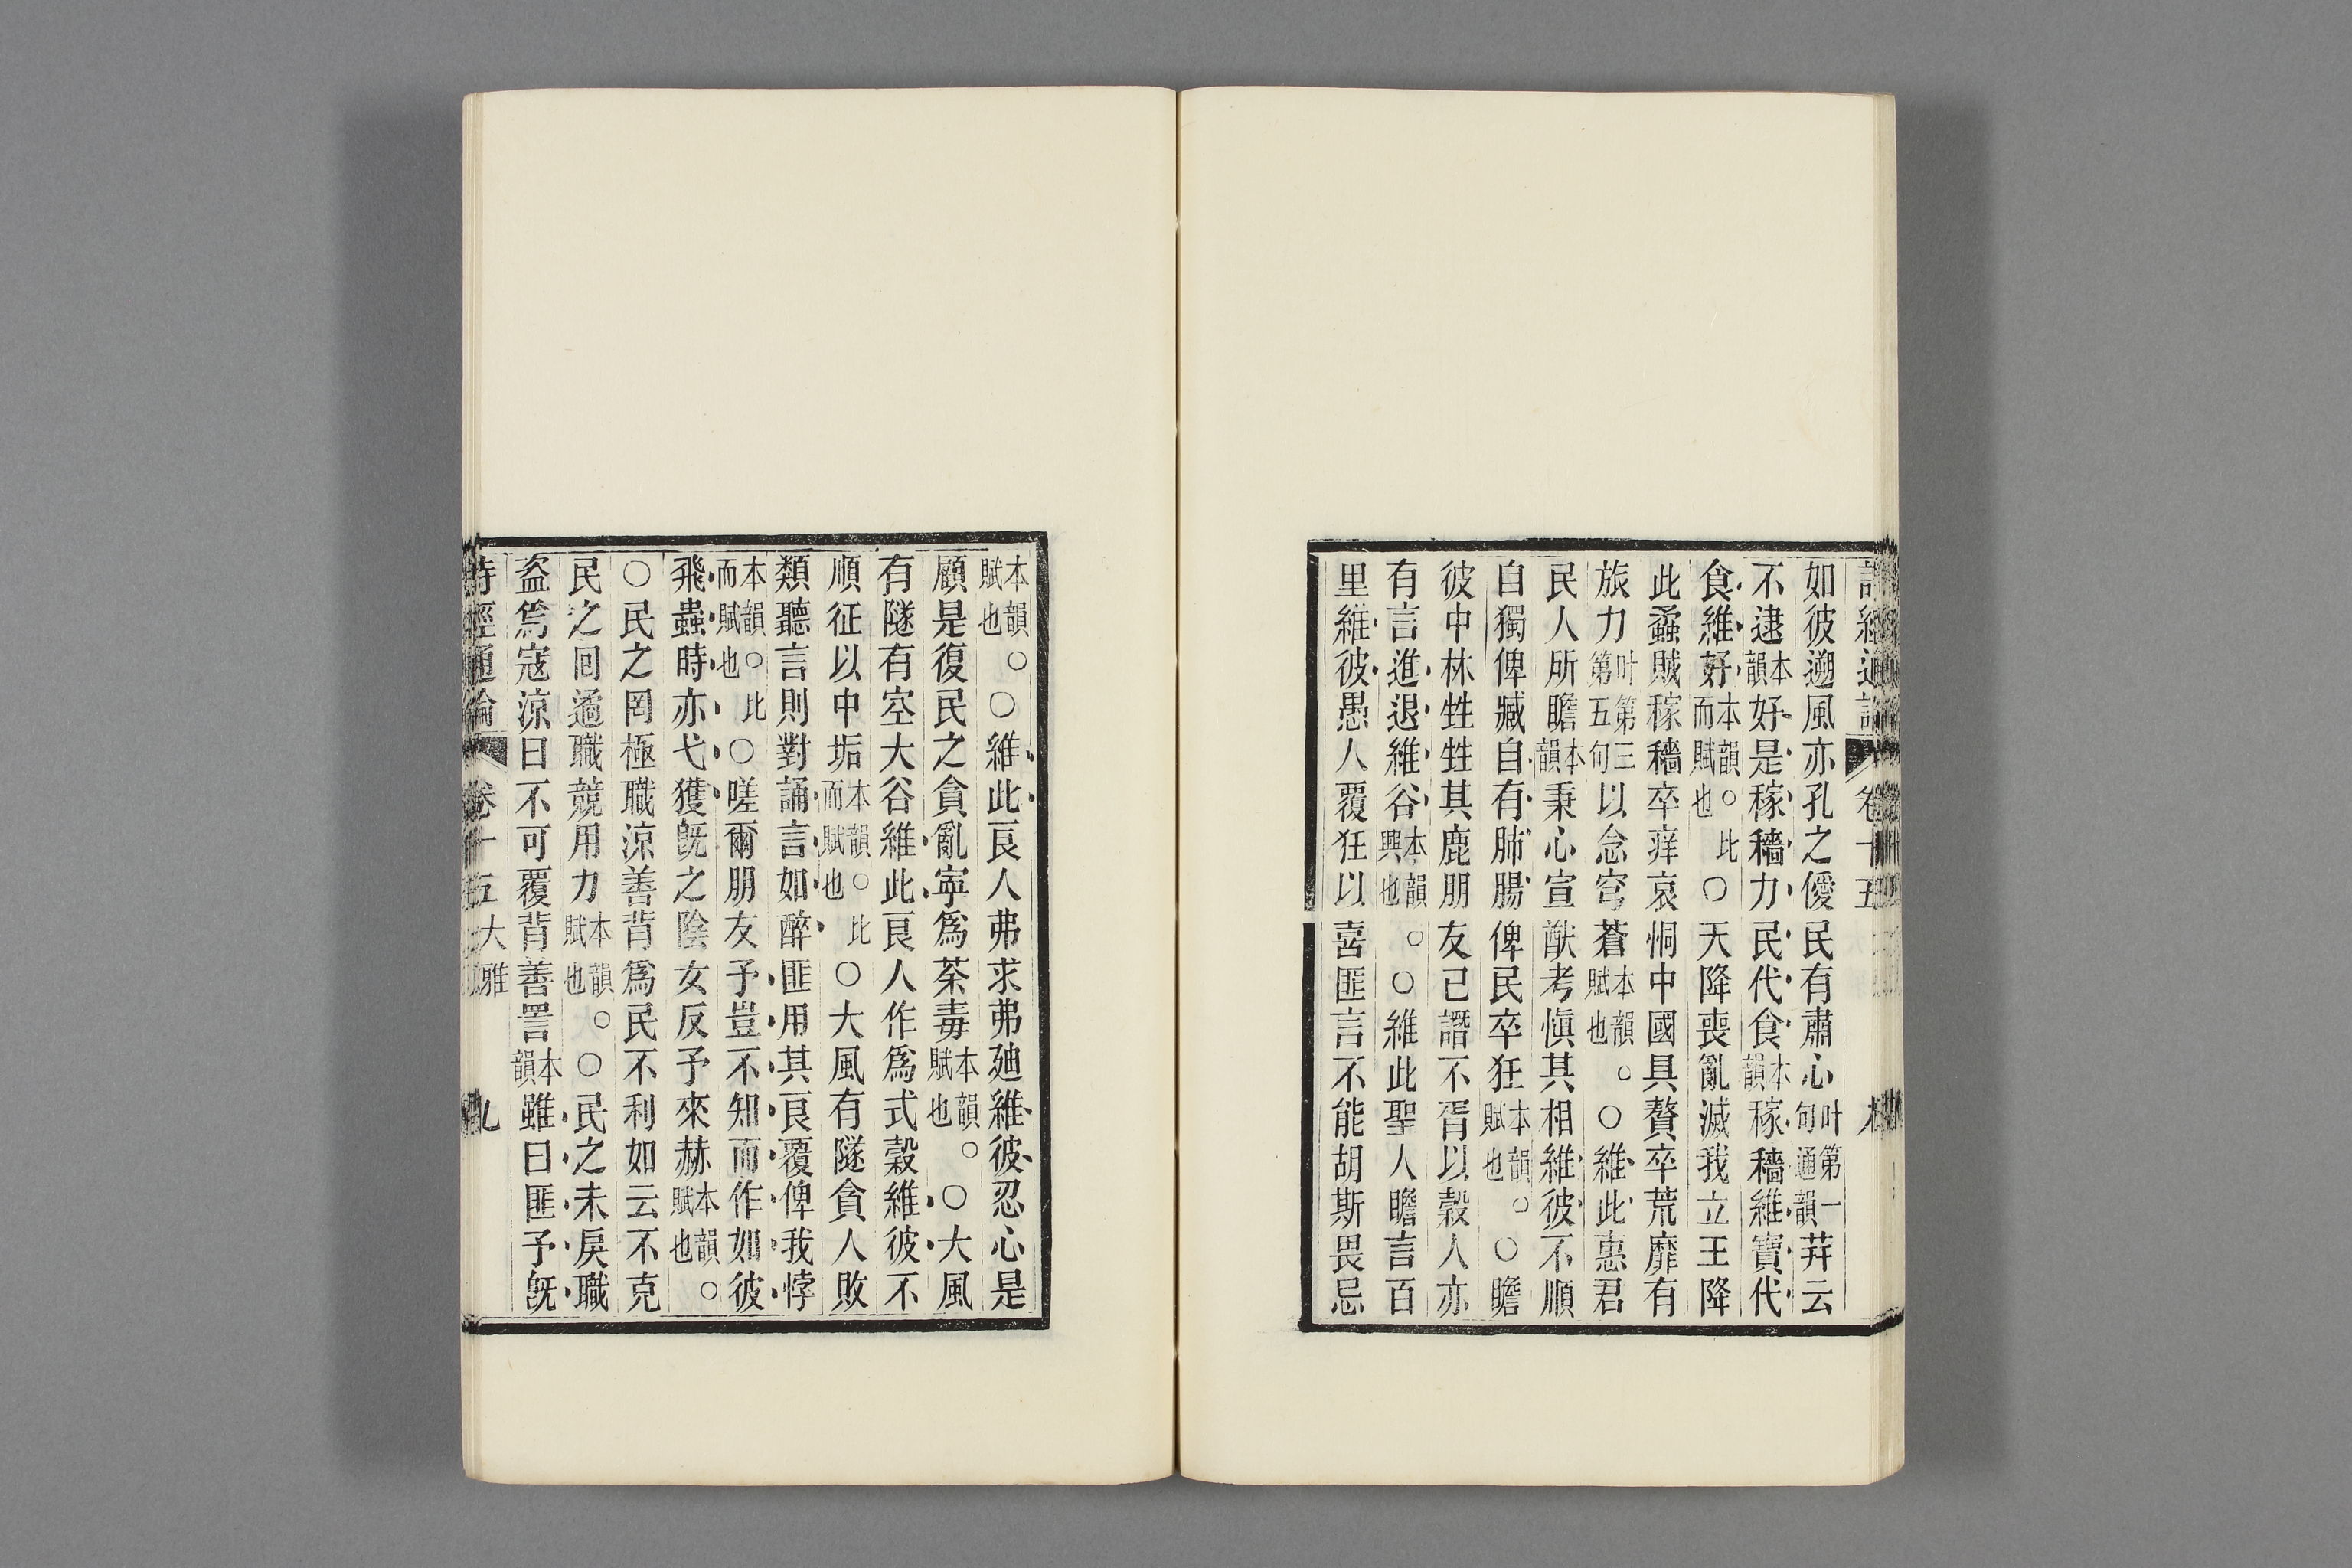 如彼遡風亦孔之僾民有肅心叶第一句通韻荓云
不逮本韻好是稼穡力民代食本韻稼穡維寶代
食維好本韻○比而賦也○天降喪亂滅我立王降
此蟊賊稼穡卒痒哀恫中國具贅卒荒靡有
旅力叶第三第五句以念穹蒼本韻○賦也○維此惠君
民人所瞻本韻秉心宣猷考愼其相維彼不順
自獨俾臧自有肺腸俾民卒狂本韻○賦也○瞻
彼中林甡甡其鹿朋友已譖不胥以穀人亦
有言進退維谷本韻○興也○維此聖人瞻言百
里維彼愚人覆狂以喜匪言不能胡斯畏忌
本韻○賦也○維此良人弗求弗廸維彼忍心是
顧是復民之貪亂寧爲荼毒本韻○賦也○大風
有隧有空大谷維此良人作爲式穀維彼不
順征以中垢本韻○比而賦也○大風有隧貪人敗
類聽言則對誦言如醉匪用其良覆俾我悖
本韻○比而賦也○嗟爾朋友予豈不知而作如彼
飛蟲時亦弋獲旣之陰女反予來赫本韻○賦也
○民之罔極職涼善背爲民不利如云不克
民之回遹職競用力本韻○賦也○民之未戾職
盜爲寇涼曰不可覆背善詈本韻雖曰匪予旣
詩經通論 卷十五 大雅 九